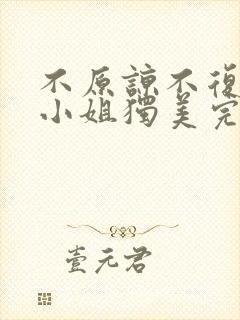 不原諒不復
小姐獨美完
壹元君